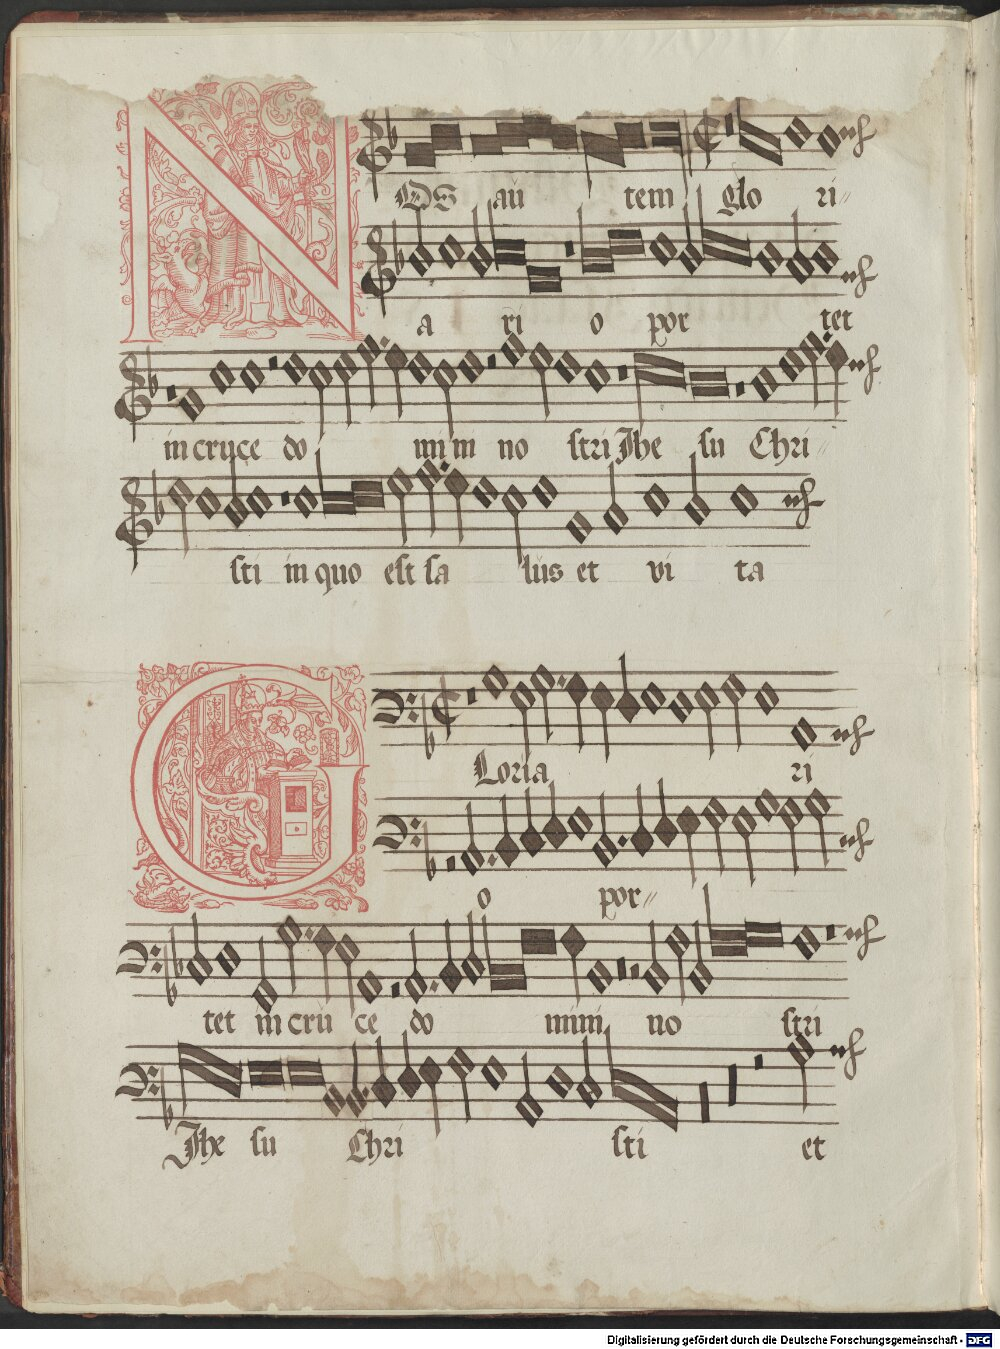 NOS au tem glo ri
a ri o por tet
in cruce do mini no stri Jhe su Chri
sti in quo est sa lus et vi ta
GLoria ri
o por
tet in cru ce do mini no stri
Jhe su Chri sti et
Digitalisierung gefördert durch die Deutsche Forschungsgemeinschaft - DFG